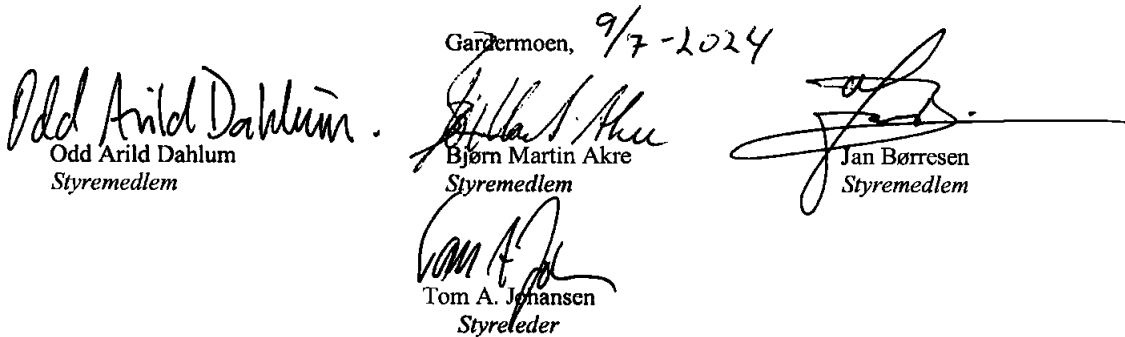 Gardermoen, 9/7-2024
Odd Arild Dahlum.
Odd Arild Dahlum
Styremedlem
Bjørn Martin Akre
Styremedlem
Jan Børresen
Styremedlem
Tom A. Johansen
Styreleder